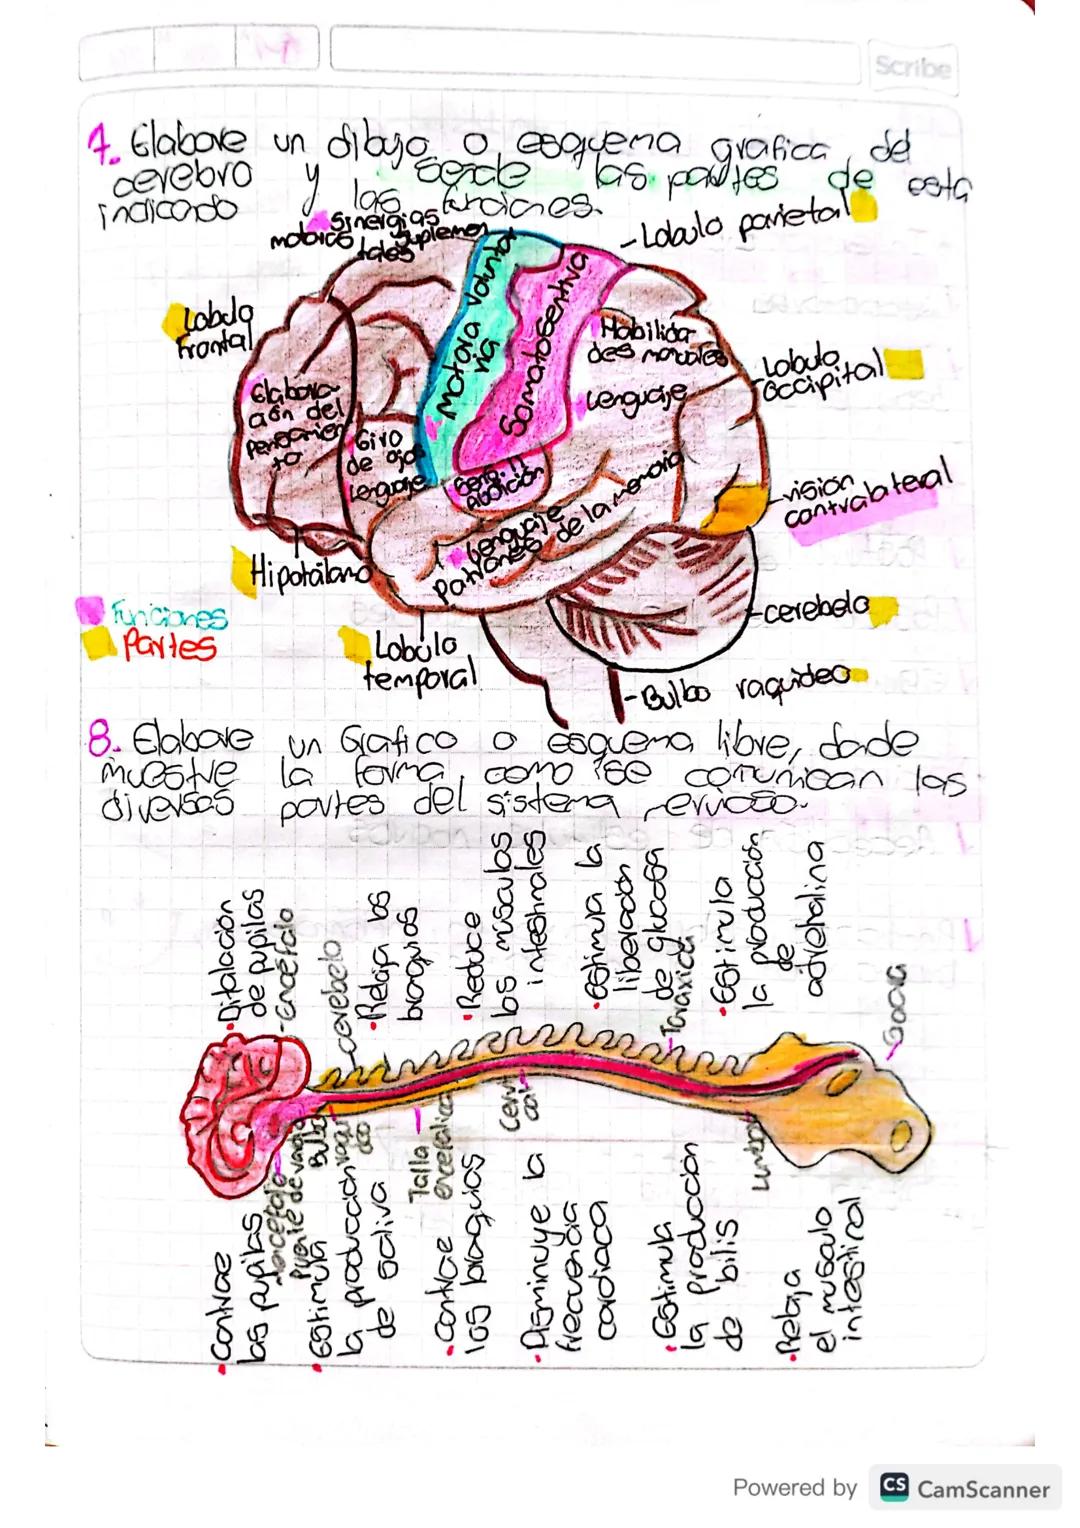 Scribe
7. Elabore un dibujo o esquema grafica del
cerebro y las partes de esta
indicando las funciones.
Sinergias
motoras suplemen
tales
-Lobulo parietal
Lobulo
frontal
Motora volunta
ria
Somatosensitiva
Habilida
des manuales
-Lobulo
occipital
Elabora-
ción del
pensamien
to
Giro
de ojos
lenguaje
Lenguaje
Audición
Lenguaje
Patrones de la memoria
-visión
contralateral
Hipotálamo
-cerebelo
Funciones
Partes
Lobulo
temporal
-Bulbo raquideo
8. Elabore un Grafico o esquema libre, donde
muestre la forma, como se comunican las
diversas partes del sistema nervioso.
•Ditalación
de pupilas
-Encéfalo
-cerebelo
•Relaja los
bronquios
•Reduce
los músculos
intestinales
•estimula la
liberación
de glucosa
-Toraxica
•Estimula
la producción
de
adrenalina
-Sacra
•Contrae
las pupilas
•Estimula
la producción
de saliva
Bulbo
Talla
encefalica
•Contrae
los bronquios
Cervi
cal
•Disminuye la
frecuencia
cardiaca
•Estimula
la producción
de bilis
Lumbar
•Relaja
el musculo
intestinal
Powered by CS CamScanner